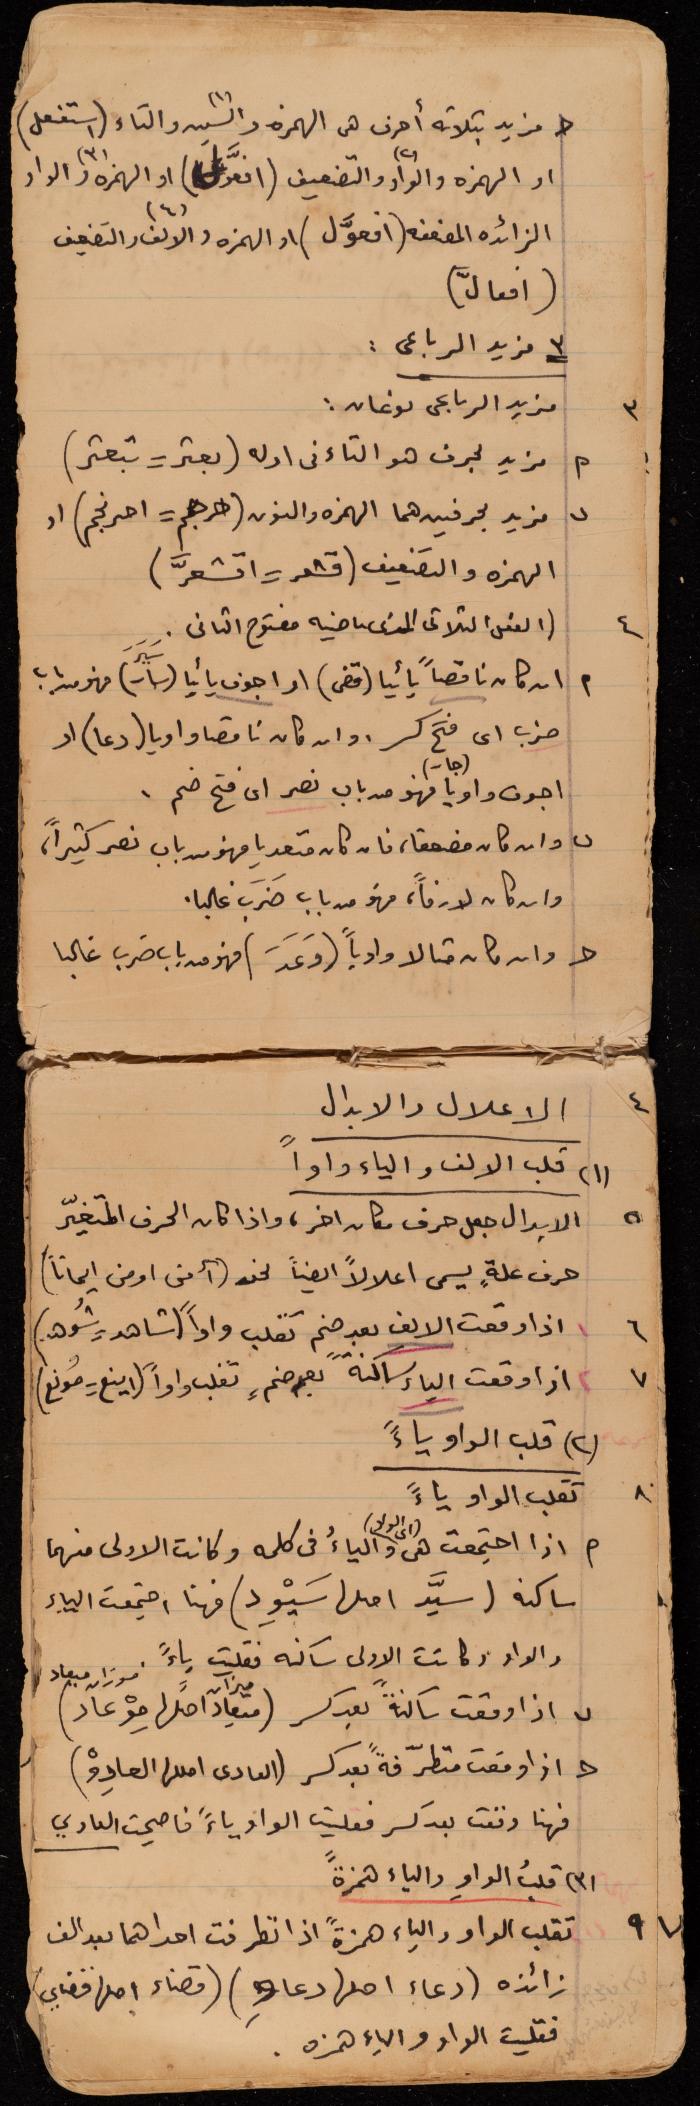 حـ مزيد بثلاثه أحرف هى الهمزه والسين والتاء (استفعل) (١)
او الهمزه والواو والتضعيف (افعوّل) او الهمزه والواو (٢) (٣)
الزائده المضعفه (افعوَّل) او الهمزه والالف والتضعيف (٤)
(افعالّ)
٣ مزيد الرباعى :
٣ مزيد الرباعى نوعان :
م مزيد بحرف هو التاء فى اوله (بعثر = تبعثر)
ب مزيد بحرفين هما الهمزه والنون (حرجم = احرنجم) او
الهمزه والتضعيف (قشعر = اقشعرَّ)
٤ (الفعل الثلاثى الذى ماضيه مفتوح الثانى .
م ان كان ناقصاً يأئيا (قضى) او اجوف يأئيا (سار) فهو من باب
ضرب اى فتح كسر ، وان كان ناقصا واويا (دعا) او
اجوف واويا (جار) فهو من باب نصر اى فتح ضم .
ب وان كان مضعفا ، فان كان متعديا فهو من باب نصر كثيراً ،
وان كان لازماً ، فهو من باب ضَرَبَ غالبا .
حـ وان كان مثالا واوياً (وَعَدَ) فهو من باب ضرب غالبا
٤ الاعلال والابدال
(١) قلب الالف والياء واواً
٥ الابدال جعل حرف مكان اخر ، واذا كان الحرف المتغيّر
حرف علةٍ يسمى اعلالاً ايضاً نحو (آمن اومن ايماناً)
٦ ١ اذا وقعت الالف بعد ضم تقلب واواً (شاهد = شُوهد)
٧ ٢ اذا وقعت الياء ساكنةً بعد ضمٍ تقلب واواً (اينع = مُونع)
(٢) قلب الواو ياءً
٨ تقلب الواو ياءً
م اذا اجتمعت هى (اى الواو) والياءُ فى كلمه وكانت الاولى منهما
ساكنه (سيَّد اصلها سَيْوِد) فهنا اجتمعت الياء
والواو وكانت الاولى ساكنه فقلبت ياءً .
ب اذا وقعت ساكنةً بعد كسر (ميعاد اصلها مِوْعاد) ميزان موزان ميعاد
حـ اذا وقعت متطرّفةً بعد كسر (العادى اصلها العادِوْ)
فهنا وقعت بعد كسر فقلبت الواو ياءً فاصبحت العادي
(٣) قلبُ الواوِ والياء همزةً
٩ تقلب الواو والياء همزةً اذا تطرفت احداهما بعد الف
زائده (دعاء اصلها دعاو) (قضاء اصلها قضاي)
فقلبت الواو والياء همزه .